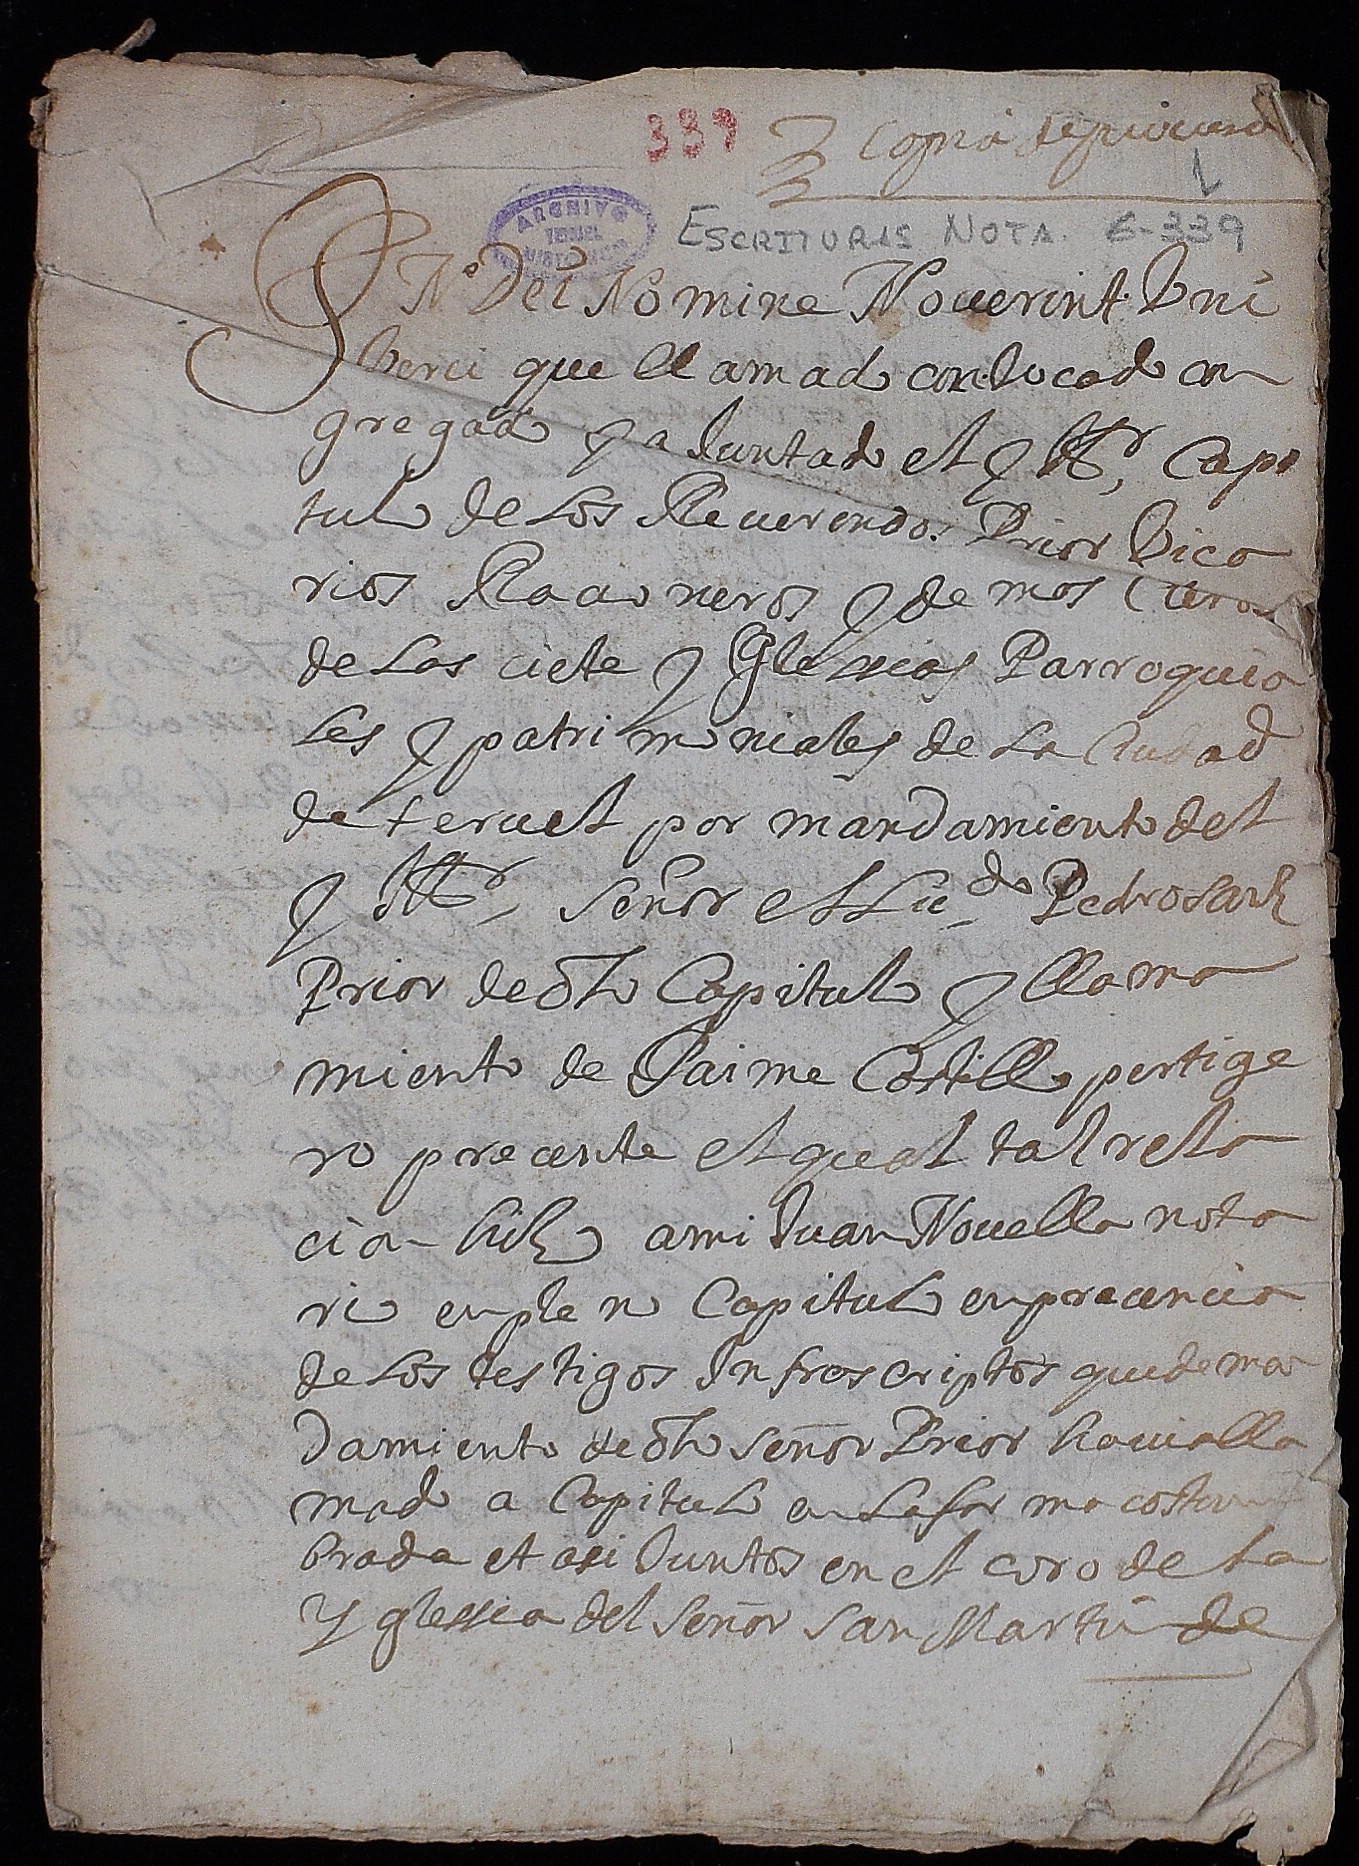 339
Copia de
ARCHIVO
TERUEL
ESCRITURAS NOTA. 6-339
In Dei Nomine Nouerint Vni
uerci que llamado conuocado con
gregado y aJuntado el y Ittr, Capi
tulo de Los Reuerendos Prior Vica
rios Racioneros y de mas Cleros
de Las ciete yglessias Parroquia
les y patrimoniales de La Ciudad
de teruel por mandamiento del
y Ittr, señor el Licdo Pedro
Prior de dho Capitulo y llama
miento de Jaime Costillo pertige
ro precente el qual tal rela
cion hiço a mi Juan Nouella nota
rio en pleno Capitulo en precencia
de Los testigos Infrascriptos que de man
damiento de dho señor Prior hauia lla
mado a Capitulo en La forma costum
brada et asi Juntos en el coro de La
Yglessia del señor San Martin de